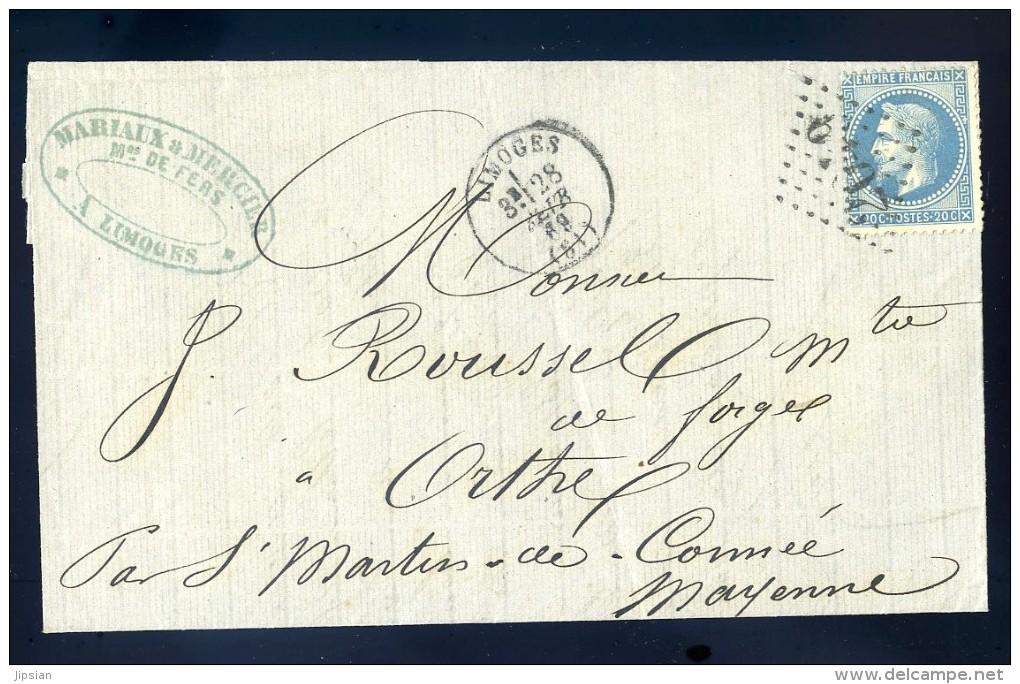 MARIAUX & MERCIER
Mds DE FERS
A LIMOGES
LIMOGES
28
(81)
EMPIRE FRANÇAIS
20C-POSTES-20C
Monsieur
J. Roussel Mtre
de forges
à Orthe
Par St Martin-de-Connée
Mayenne
jipsian
www.delcampe.net